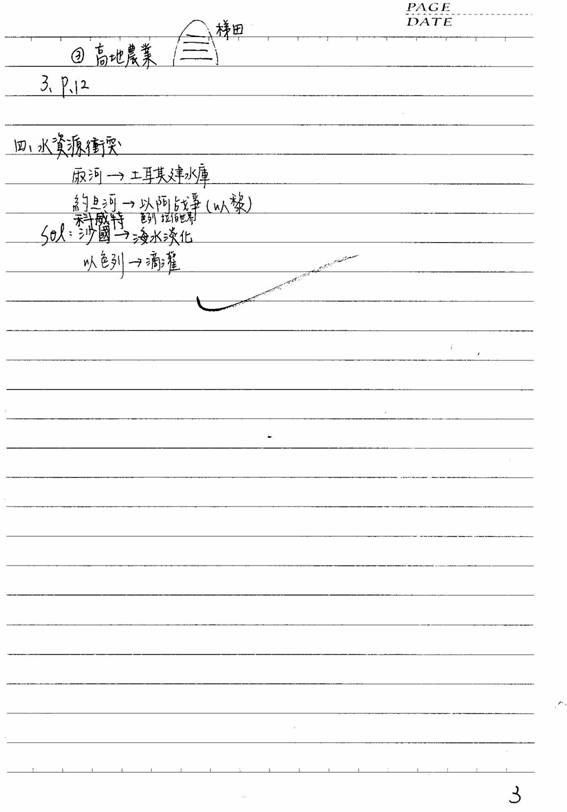 PAGE
DATE
梯田
③ 高地農業
3、P.12
四、水資源衝突
兩河→土耳其建水庫
約旦河→以阿戰爭(以黎)
科威特 色列 拉伯世界
Sol:沙國→海水淡化
以色列→滴灌
3